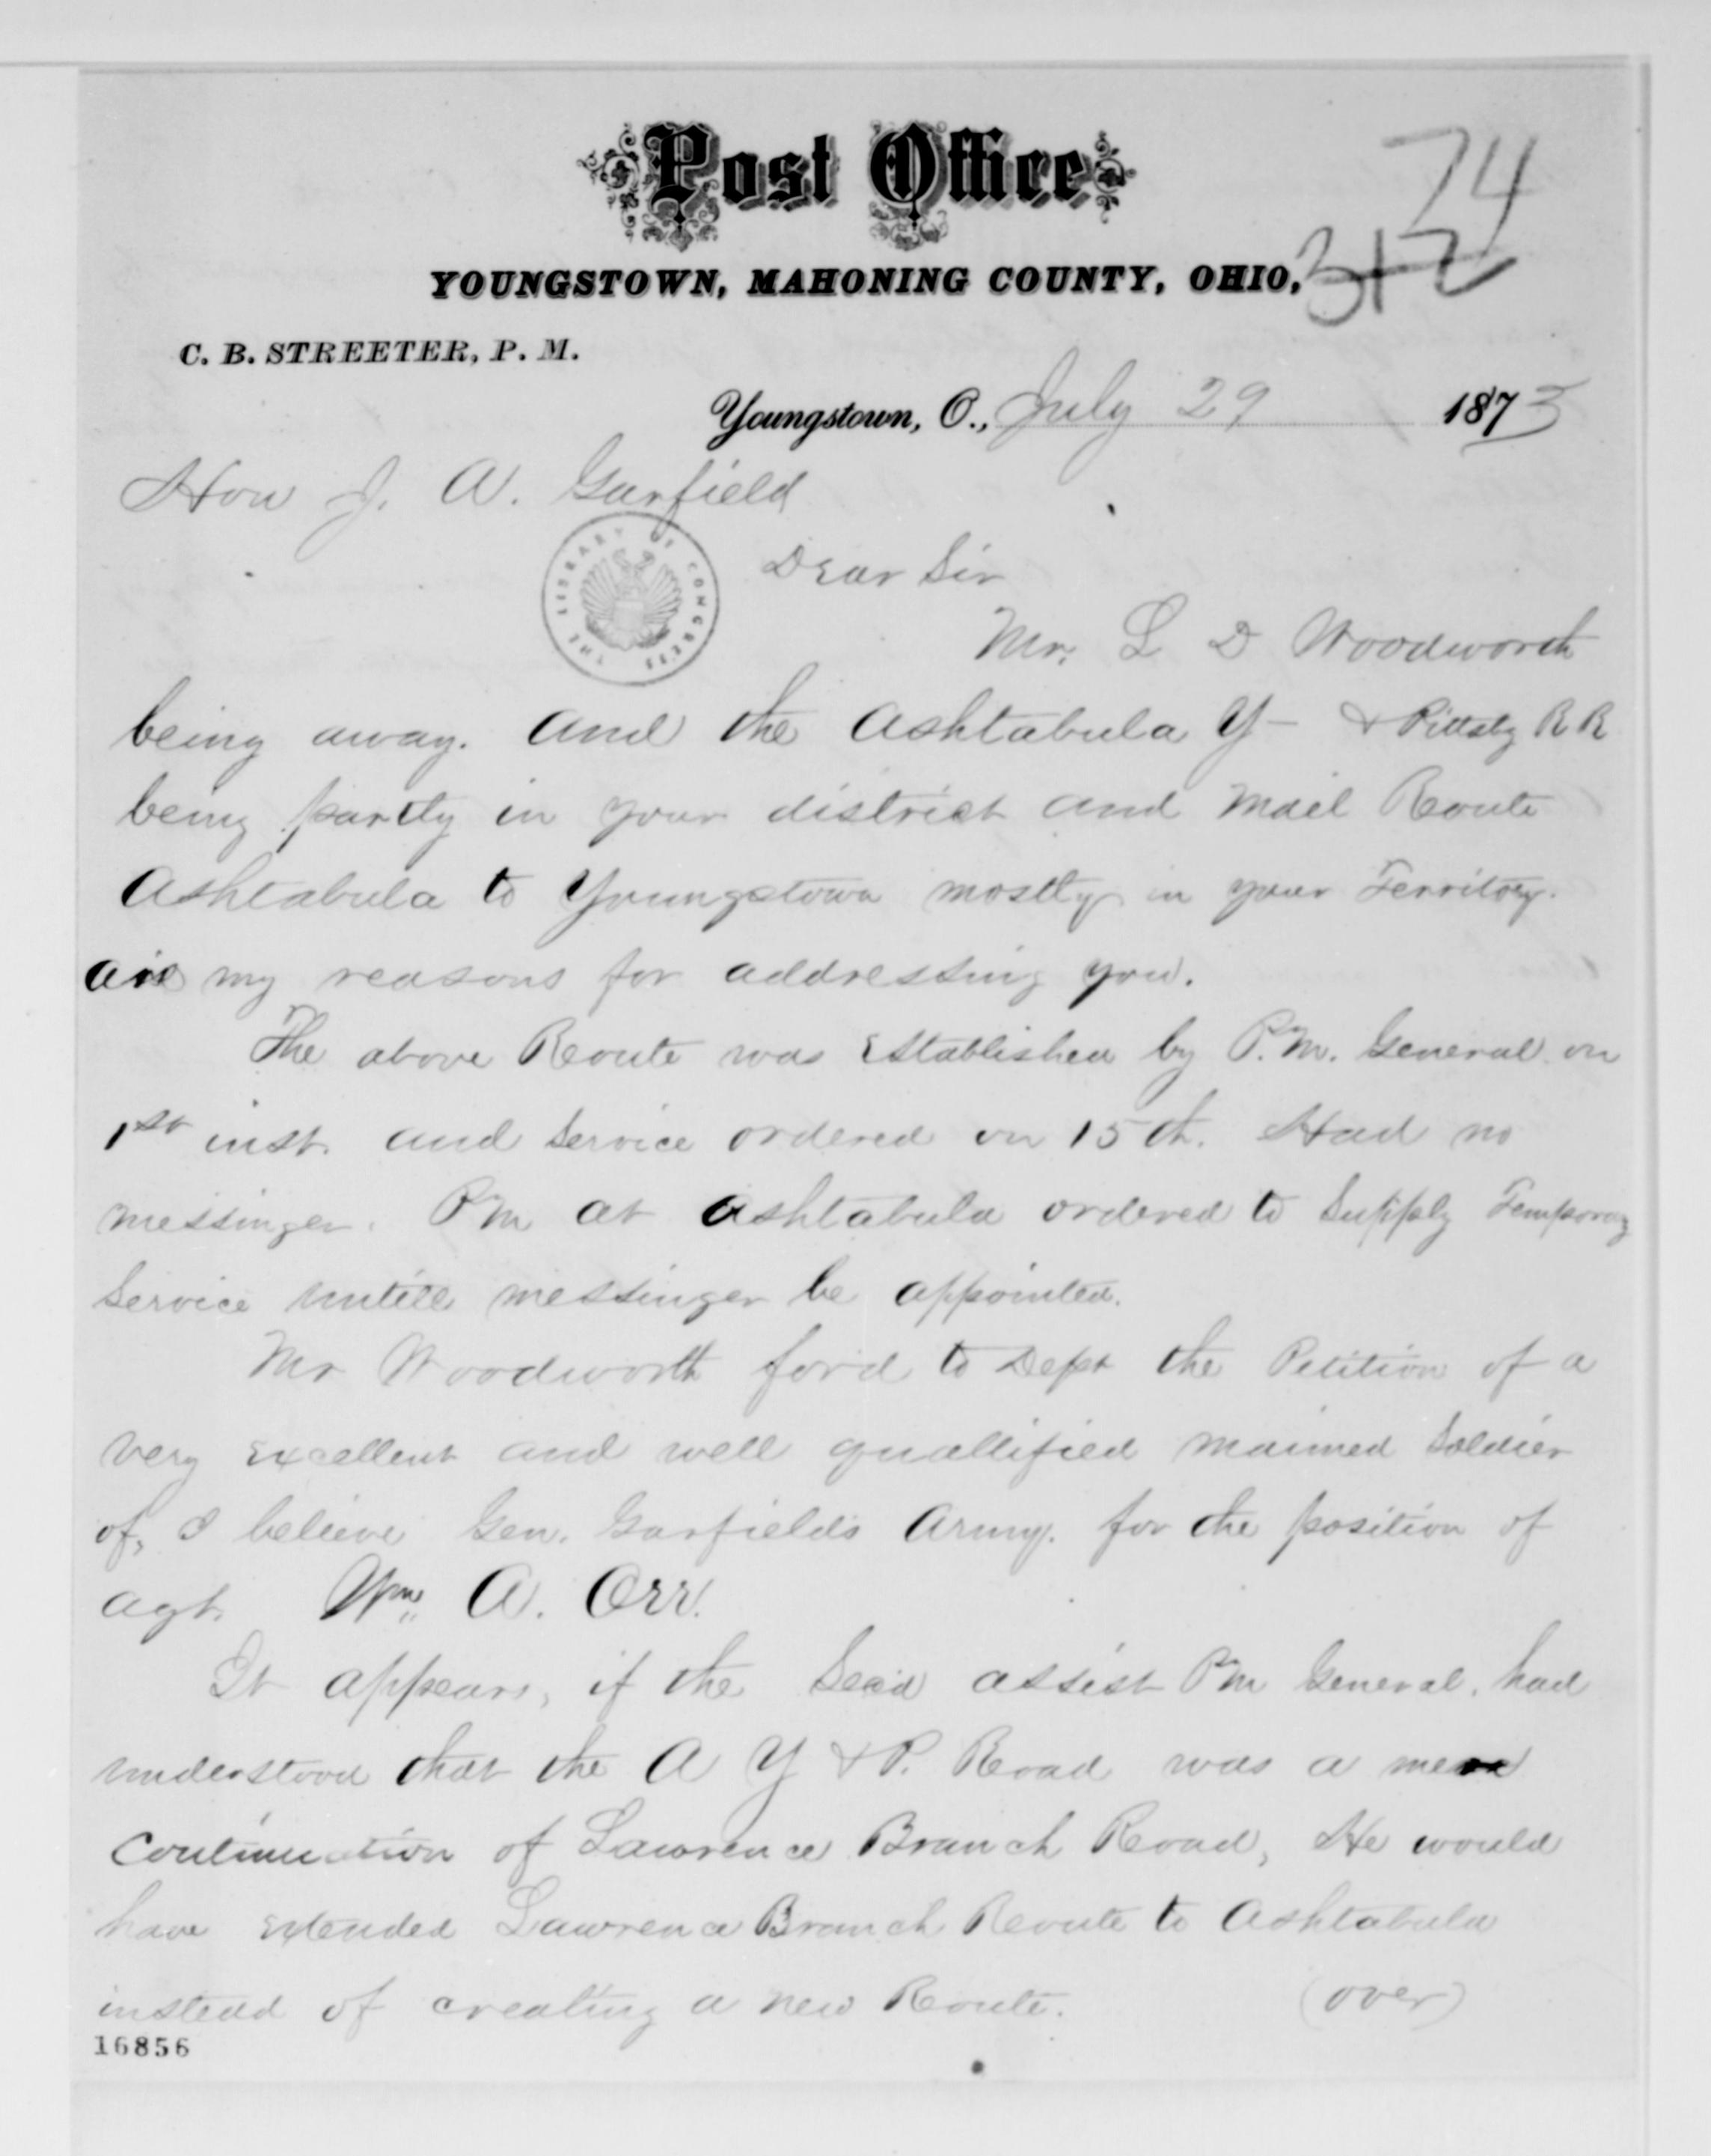 Post Office
74
YOUNGSTOWN, MAHONING COUNTY, OHIO,
312
C. B. STREETER, P. M.
Youngstown, O., July 29 1873
Hon J. A. Garfield
THE LIBRARY OF CONGRESS
Dear Sir
Mr. L D Woodworth
being away. and the Ashtabula Y- & Pittsbg R R
being partly in your district and Mail Route
Ashtabula to Youngstown mostly in your Territory.
are my reasons for addressing you.
The above Route was Established by P.M. General on
1st inst. and Service ordered on 15th. Had no
messinger. PM at Ashtabula ordered to Supply Temporay
Service untill messinger be appointed.
Mr Woodworth for'd to Dept the Petition of a
very Excellent and well quallified maimed Soldier
of, I believe Gen. Garfields Army. for the position of
agt. Wm. A. Orr.
It appears, if the Sec'd assist PM General. had
understood that the A Y & P. Road was a mere
Continuation of Lawrence Branch Road, He would
have Extended Lawrence Branch Route to Ashtabula
instead of creating a new Route. (over)
16856